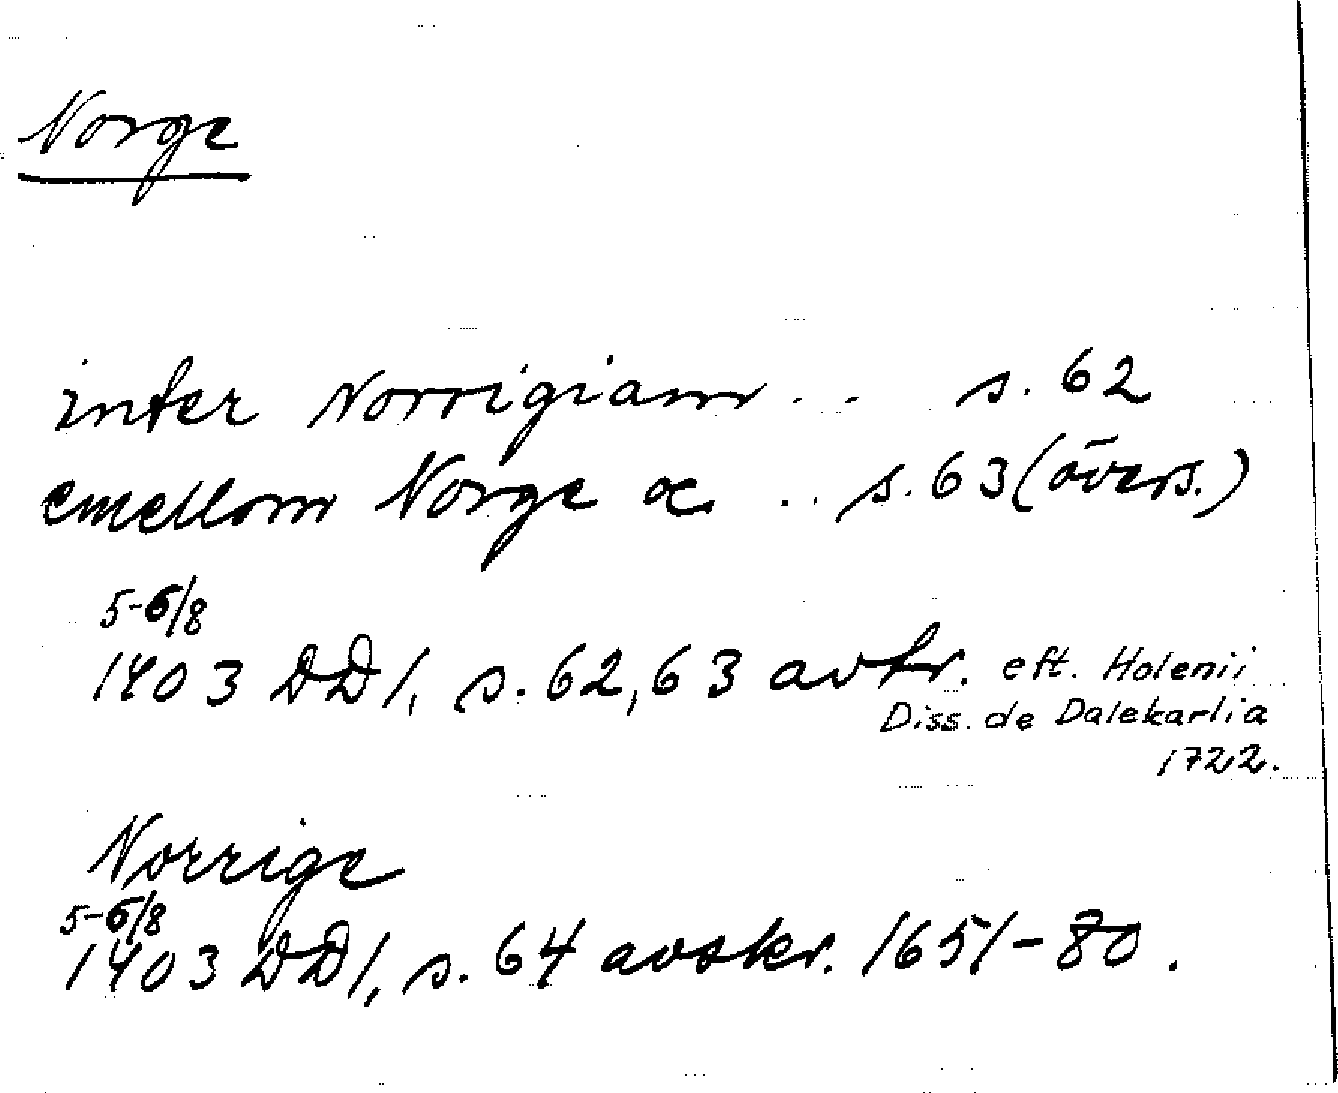 Norge
inter Norrigiam . . s. 62
emellom Norge oc . . s. 63 (övers.)
5-6/8
1403 DD 1, s. 62, 63 avtr. eft. Holenii
Diss. de Dalekarlia
1722.
Norrige
5-6/8
1403 DD 1, s. 64 avskr. 1651-80.